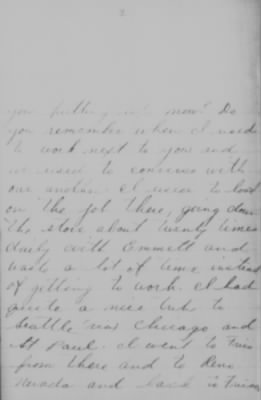 2
you putting in now? Do
you remember when I used
to work next to you and
we used to converse with
one another. I used to loaf
on the job there, going down
the store about twenty times
daily with Emmett and
waste a lot of time instead
of getting to work. I had
quite a nice trip to
Seattle via Chicago and
St Paul. I went to
from there and to Reno
Nevada and back to